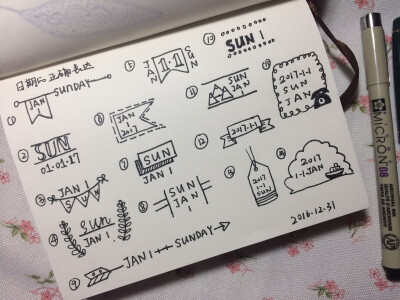 日期の正确表达
①
JAN
SUNDAY
②
SUN
01·01·17
③
JAN
SUN
④
sun
JAN 1
⑤
JAN
1·1
SUN
⑥
JAN
2017
⑦
SUN
JAN 1
⑧
SUN
JAN
1
⑨
JAN 1
SUNDAY
⑩
SUN 1
⑪
SUN
JAN
⑫
2017·1·1
⑬
2017·1·1
SUN
JAN
⑭
2017
1·1
SUN
2017
1·1·JAN
2016.12.31
MICRON 08